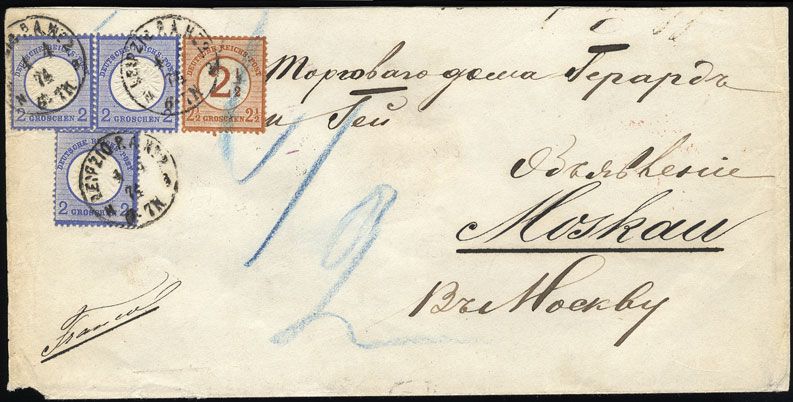 DEUTSCHE REICHS-POST
2 GROSCHEN 2
DEUTSCHE REICHS-POST
2 GROSCHEN 2
DEUTSCHE REICHS-POST
2½
2½ GROSCHEN 2½
DEUTSCHE REICHS-POST
2 GROSCHEN 2
LEIPZIG P.A. № 2
74
6-7N
Торговаго дома Герардъ
и Гей
Объявленіе
Moskau
Въ Москву
Franco
1/2